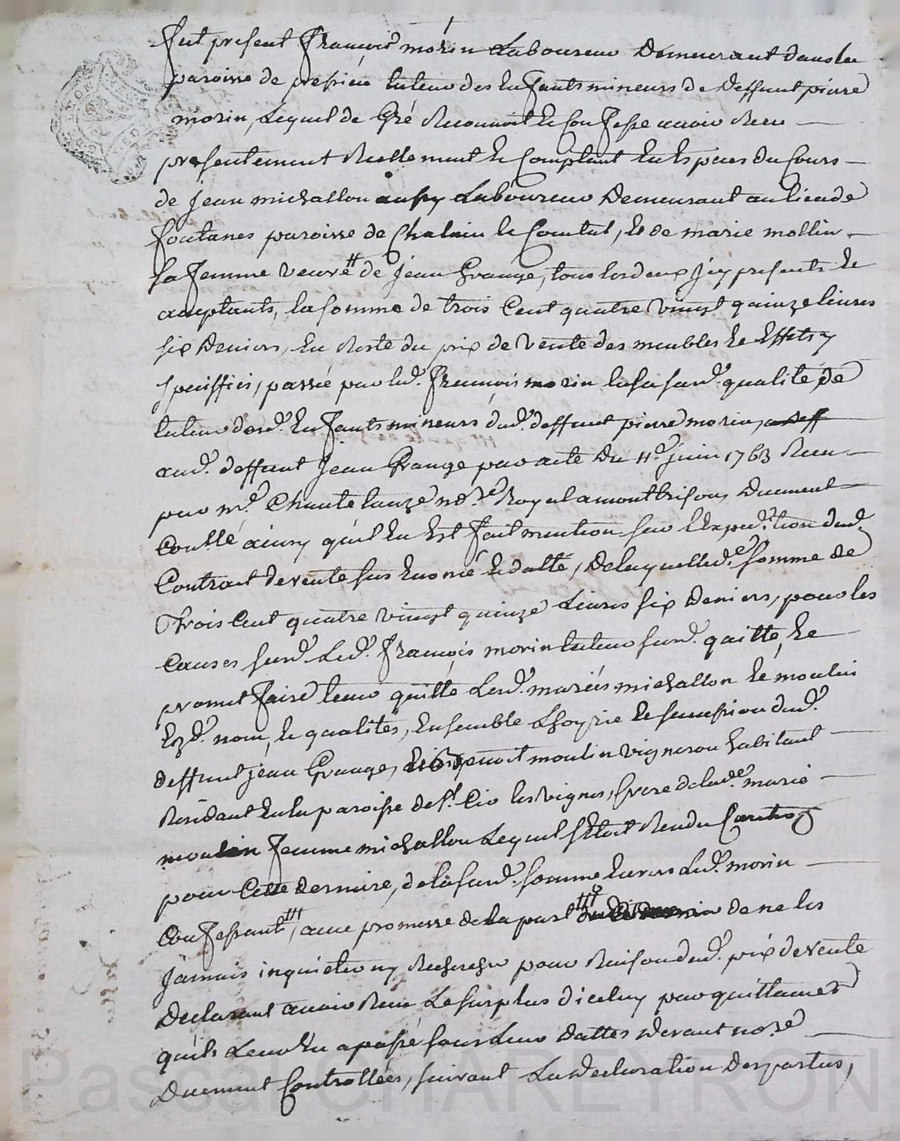 fut présent François morin Laboureur Demeurant dans la
paroisse de précieu tuteur des Enfants mineurs de Deffunt pierre
morin, Lequel de Gré Reconnoit et Confesse avoir Recu
présentement Reellement et Comptant En Espèces du Cours
de Jean michallon aussy Laboureur Demeurant au lieu de
fontanes paroisse de Chalain le Comtal, Et de marie mollin
sa femme veuve de Jean Grange, tous les deux Icy présents et
acceptants, la somme de trois Cent quatre vingt quinze livres
six Deniers, En Reste du prix de vente des meubles Et Effets y
spécifiés, passée par led. François morin En sa susd. qualité de
tuteur desd. Enfants mineurs dud. deffunt pierre morin,
aud. deffunt Jean Grange par acte du 11e. juin 1763 Recu
par me. Chantelauze nore. Royal a montbrison, Duement
Conllé ainsy qu'il En Est fait mention sur l'Expedition dud.
Contract de vente sus Enoncé Et datté, De laquelle d. somme de
Trois Cent quatre vingt quinze Livres six Deniers, pour les
Causes susd. Led. François morin tuteur susd. quitte, Et
promet faire tenir quitte Lesd. mariés michallon et moulin
Ezd. noms, et qualités, Ensemble L'hoyrie et succession dud.
deffunt Jean Grange, et Benoit moulin vigneron habitant
Résidant En la paroisse de St. Cir les vignes, frere de lade. marie
moulin femme michallon Lequel s'étoit Rendu Caution
pour Cette derniere, de la susd. somme Envers Led. morin
Confessant, avec promesse de la part de ne les
Jamais inquieter ny Rechercher pour Raison dud. prix de vente
Declarant avoir Recu Le surplus d'iceluy par quittances
qu'il Leur En a passé sous Leurs dattes devant nore
Duement Controllées, suivant La Declaration des parties,
Pascal CHAREYRON